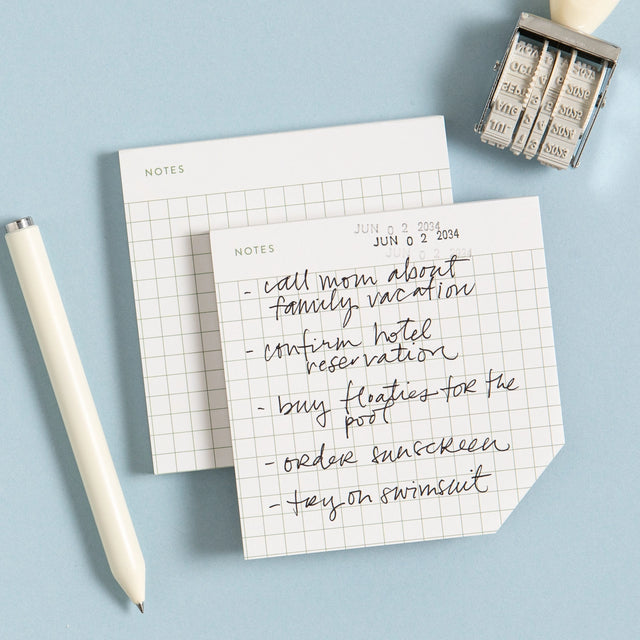 NOTES
NOTES
JUN 0 2 2034
JUN 0 2 2034
JUN 0 2 2034
- call mom about
family vacation
- confirm hotel
reservation
- buy floaties for the
pool
- order sunscreen
- try on swimsuit